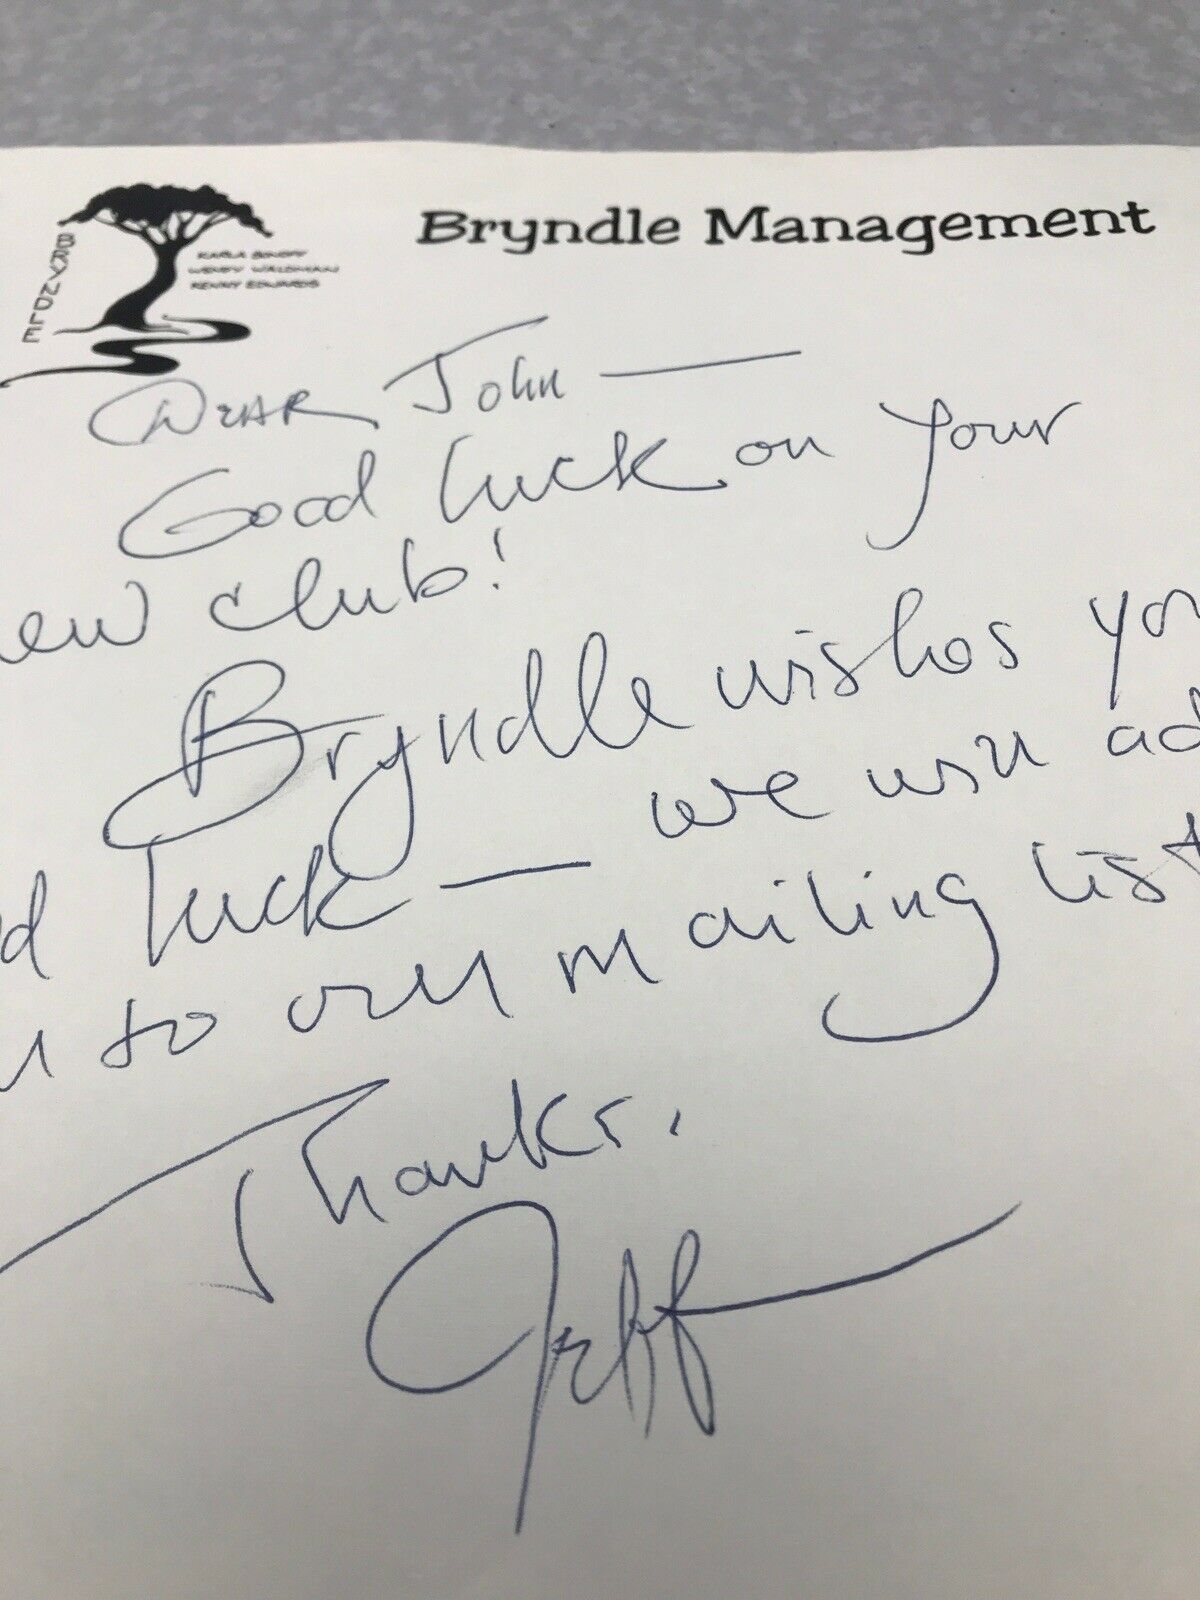 Bryndle Management
BRYNDLE
KARLA BONOFF
WENDY WALDMAN
KENNY EDWARDS
DEAR John —
Good luck on your
ew club!
Bryndle wishes yo
d luck — we will ad
u to our mailing list
Thanks.
Jeff